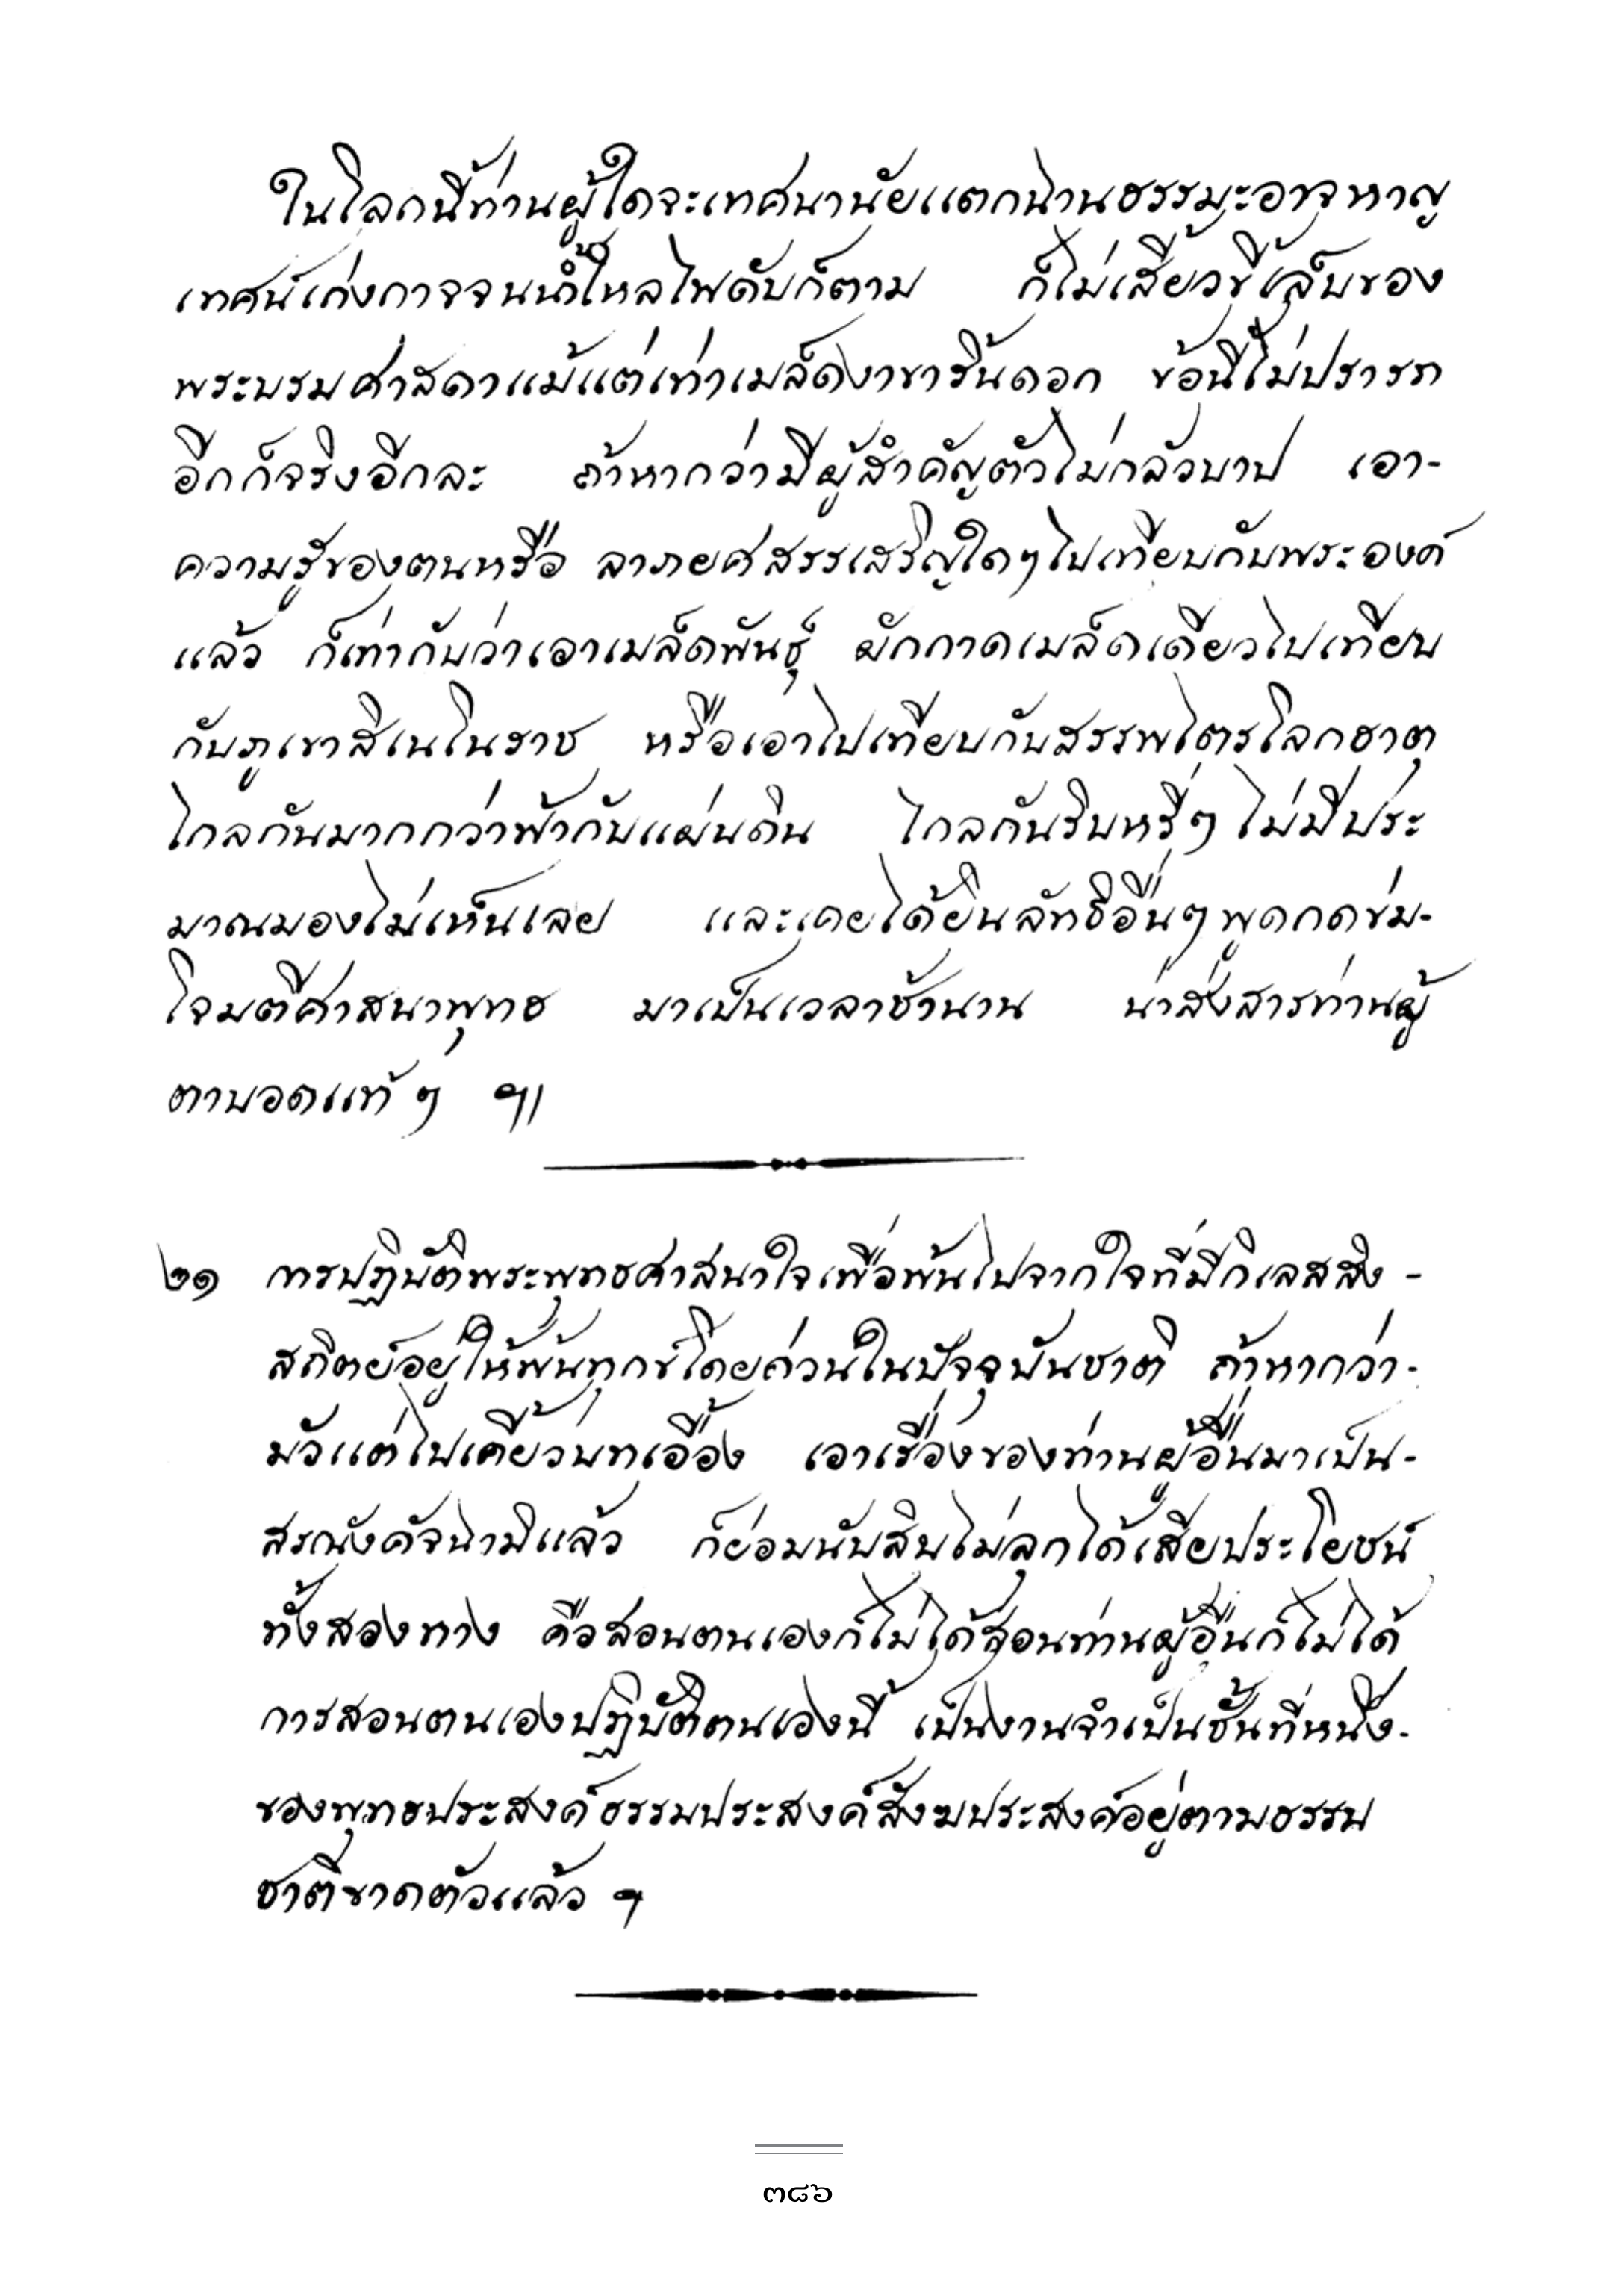 ในโลกนี้ท่านผู้ใดจะเทศนานัยแตกฉานธรรมะอาจหาญ
เทศน์เก่งกาจจนน้ำไหลไฟดับก็ตาม ก็ไม่เสี้ยวขี้เล็บของ
พระบรมศาสดาแม้แต่เท่าเมล็ดงาขาริ้นดอก ข้อนี้ไม่ปรารภ
อีกก็จริงอีกละ ถ้าหากว่ามีผู้สำคัญตัวไม่กลัวบาป เอา-
ความรู้ของตนหรือ ลาภยศสรรเสริญใดๆไปเทียบกับพระองค์
แล้ว ก็เท่ากับว่าเอาเมล็ดพันธุ์ ผักกาดเมล็ดเดียวไปเทียบ
กับภูเขาสิเนโนราช หรือเอาไปเทียบกับสรรพไตรโลกธาตุ
ไกลกันมากกว่าฟ้ากับแผ่นดิน ไกลกันริบหรี่ๆ ไม่มีประ
มาณมองไม่เห็นเลย และเคยได้ยินลัทธิอื่นๆพูดกดข่ม-
โจมตีศาสนาพุทธ มาเป็นเวลาช้านาน น่าสังสารท่านผู้
ตาบอดแท้ ๆ ฯ|
๒๑ การปฏิบัติพระพุทธศาสนาใจเพื่อพ้นไปจากใจที่มีกิเลสสิง -
สถิตย์อยู่ให้พ้นทุกข์โดยด่วนในปัจจุบันชาติ ถ้าหากว่า-
มัวแต่ไปเคี้ยวบทเอื้อง เอาเรื่องของท่านผู้อื่นมาเป็น-
สรณังคัจฉามิแล้ว ก็ย่อมนับสิบไม่ลุกได้เสียประโยชน์
ทั้งสองทาง คือสอนตนเองก็ไม่ได้สอนท่านผู้อื่นก็ไม่ได้
การสอนตนเองปฏิบัติตนเองนี้ เป็นงานจำเป็นชั้นที่หนึ่ง-
ของพุทธประสงค์ธรรมประสงค์สังฆประสงค์อยู่ตามธรรม
ชาติขาดตัวแล้ว ฯ
๓๘๖